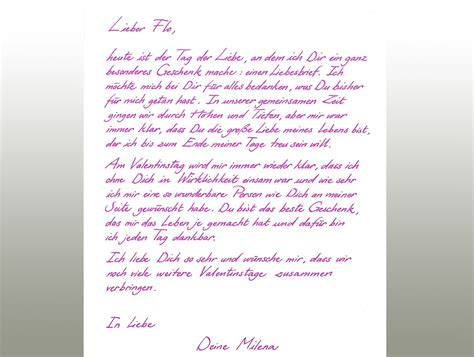 Lieber Flo,
heute ist der Tag der Liebe, an dem ich Dir ein ganz
besonderes Geschenk mache: einen Liebesbrief. Ich
möchte mich bei Dir für alles bedanken, was Du bisher
für mich getan hast. In unserer gemeinsamen Zeit
gingen wir durch Höhen und Tiefen, aber mir war
immer klar, dass Du die große Liebe meines Lebens bist,
der ich bis zum Ende meiner Tage treu sein will.
Am Valentinstag wird mir immer wieder klar, dass ich
ohne Dich in Wirklichkeit einsam war und wie sehr
ich mir eine so wunderbare Person wie Dich an meiner
Seite gewünscht habe. Du bist das beste Geschenk,
das mir das Leben je gemacht hat und dafür bin
ich jeden Tag dankbar.
Ich liebe Dich so sehr und wünsche mir, dass wir
noch viele weitere Valentinstage zusammen
verbringen.
In Liebe
Deine Milena